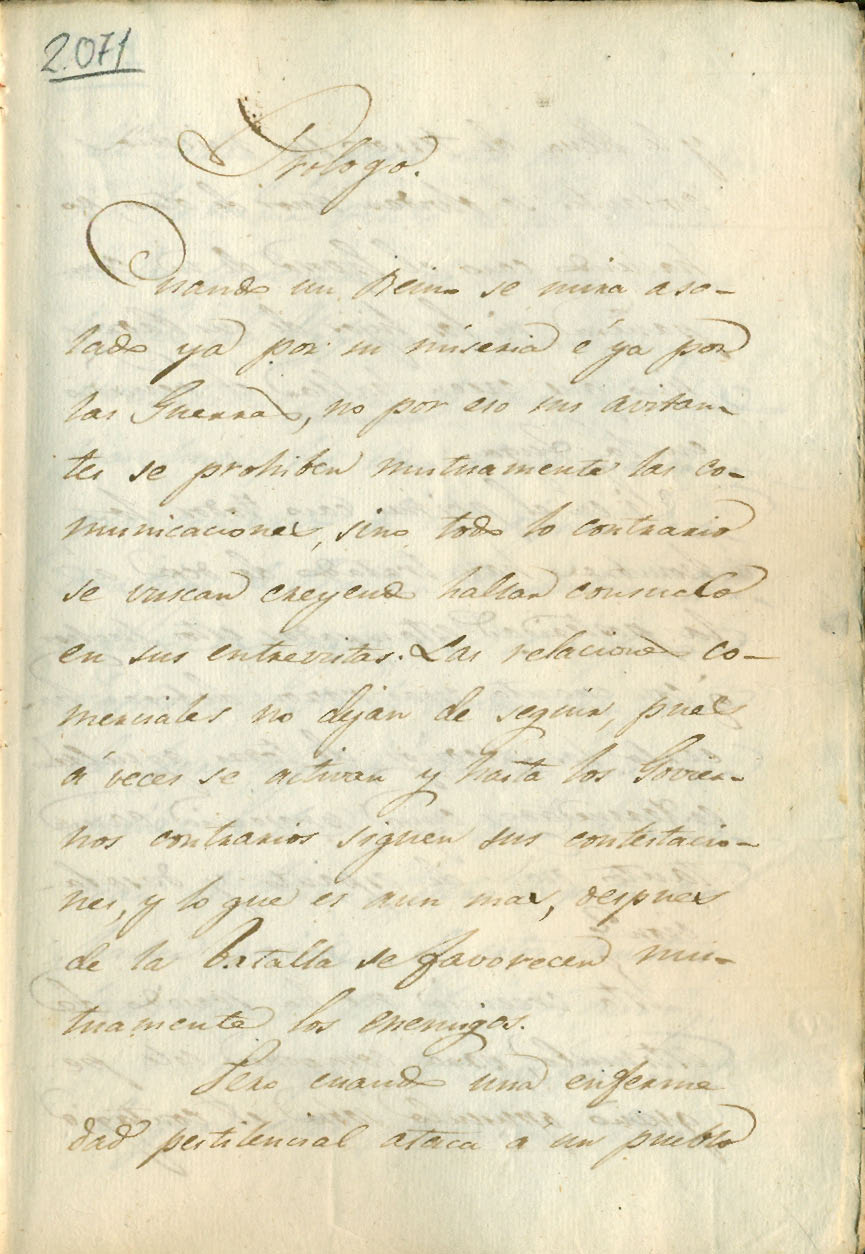 2.071
Prologo.
Cuando un Reino se mira aso-
lado ya por su miseria é ya por
las Guerras, no por eso sus avitan-
tes se prohiben mutuamente las co-
municaciones, sino todo lo contrario
se vuscan creyendo hallar consuelo
en sus entrevistas. Las relaciones co-
merciales no dejan de seguir, pues
á veces se activan y hasta los Govier-
nos contrarios siguen sus contestacio-
nes, y lo que es aun mas, despues
de la batalla se favorecen mu-
tuamente los enemigos.
Pero cuando una enferme
dad pestilencial ataca a un pueblo